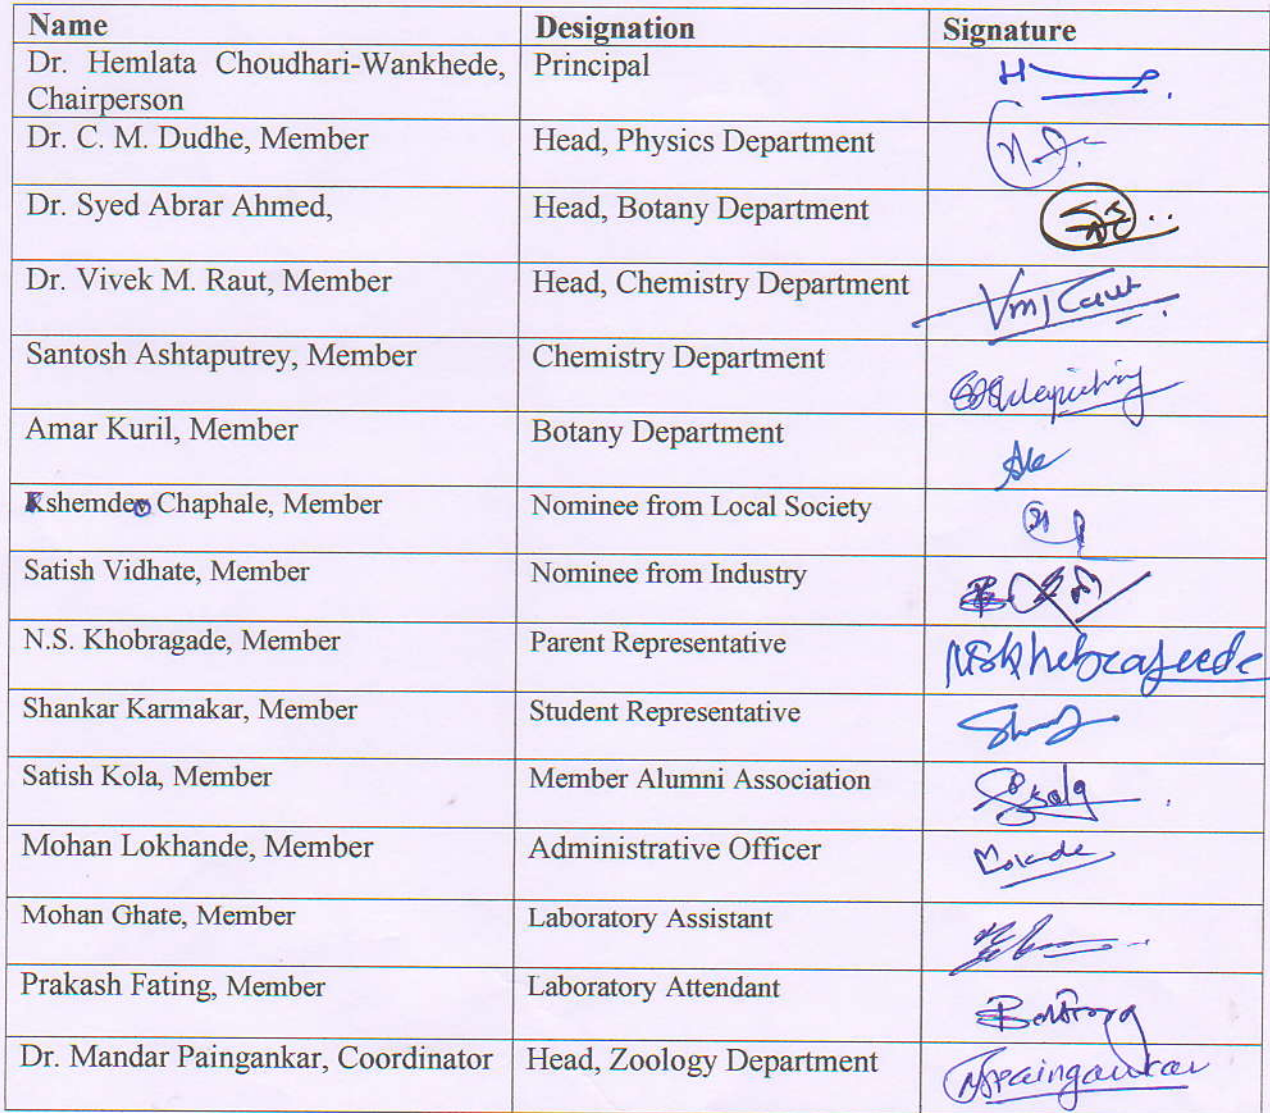 Name Designation Signature
Dr. Hemlata Choudhari-Wankhede, Principal
Chairperson
Dr. C. M. Dudhe, Member Head, Physics Department
Dr. Syed Abrar Ahmed, Head, Botany Department
Dr. Vivek M. Raut, Member Head, Chemistry Department VmRaut
Santosh Ashtaputrey, Member Chemistry Department
Amar Kuril, Member Botany Department
Kshemdeo Chaphale, Member Nominee from Local Society
Satish Vidhate, Member Nominee from Industry
N.S. Khobragade, Member Parent Representative NSKhobragade
Shankar Karmakar, Member Student Representative
Satish Kola, Member Member Alumni Association
Mohan Lokhande, Member Administrative Officer
Mohan Ghate, Member Laboratory Assistant
Prakash Fating, Member Laboratory Attendant
Dr. Mandar Paingankar, Coordinator Head, Zoology Department MSPaingankar